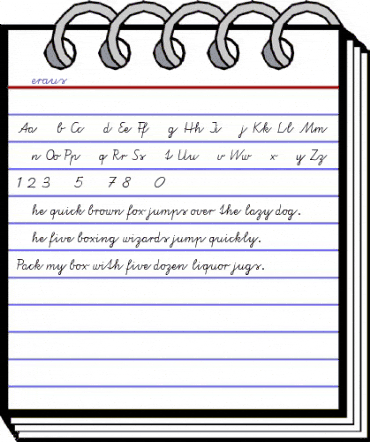 eraus
Aa b Cc d Ee Ff g Hh Ii j Kk Ll Mm
n Oo Pp q Rr Ss t Uu v Ww x y Zz
1 2 3 5 7 8 0
he quick brown fox jumps over the lazy dog.
he five boxing wizards jump quickly.
Pack my box with five dozen liquor jugs.